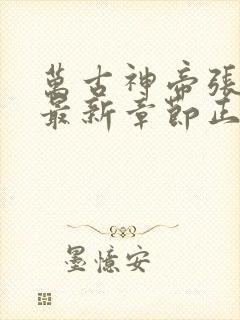 萬古神帝張
最新章節正
墨憶安